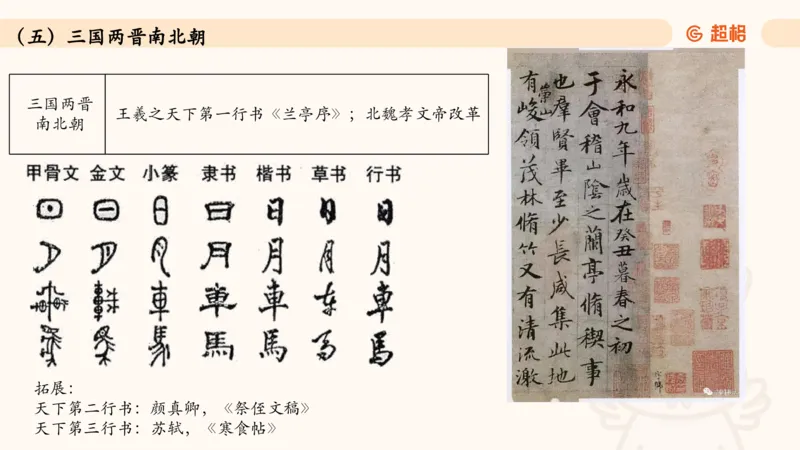 （五）三国两晋南北朝
超格
三国两晋
南北朝
王羲之天下第一行书《兰亭序》；北魏孝文帝改革
甲骨文 金文 小篆 隶书 楷书 草书 行书
日 日 日 日 日 日 日
月 月 月 月 月 月 月
車 車 車 車 車 车 車
馬 馬 馬 馬 馬 马 馬
拓展：
天下第二行书：颜真卿，《祭侄文稿》
天下第三行书：苏轼，《寒食帖》
永和九年歲在癸丑暮春之初
于會稽山陰之蘭亭脩稧事
也群賢畢至少長咸集此地
有崇山峻領茂林脩竹又有清流激